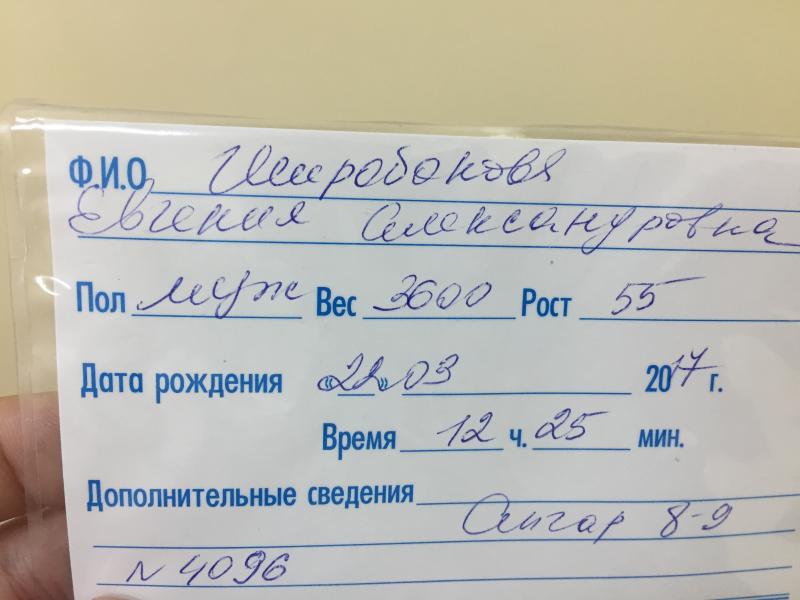 Ф.И.О Широбокова
Евгения Александровна
Пол муж Вес 3600 Рост 55
Дата рождения «22» 03 2017 г.
Время 12 ч. 25 мин.
Дополнительные сведения
Апгар 8-9
N 4096